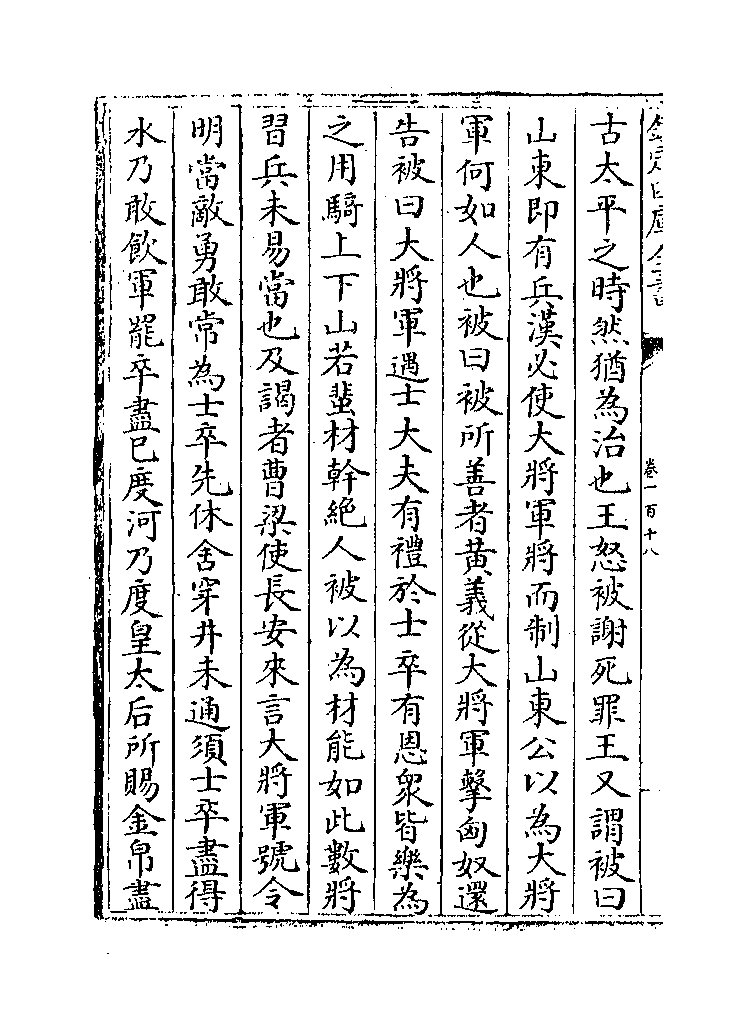 欽定四庫全書
卷一百十八
古太平之時然猶為治也王怒被謝死罪王又謂被曰
山東即有兵漢必使大將軍將而制山東公以為大將
軍何如人也被曰被所善者黃義從大將軍擊匈奴還
告被曰大將軍遇士大夫有禮於士卒有恩衆皆樂為
之用騎上下山若蜚材幹絶人被以為材能如此數將
習兵未易當也及謁者曹梁使長安來言大將軍號令
明當敵勇敢常為士卒先休舍穿井未通須士卒盡得
水乃敢飲軍罷卒盡已度河乃度皇太后所賜金帛盡